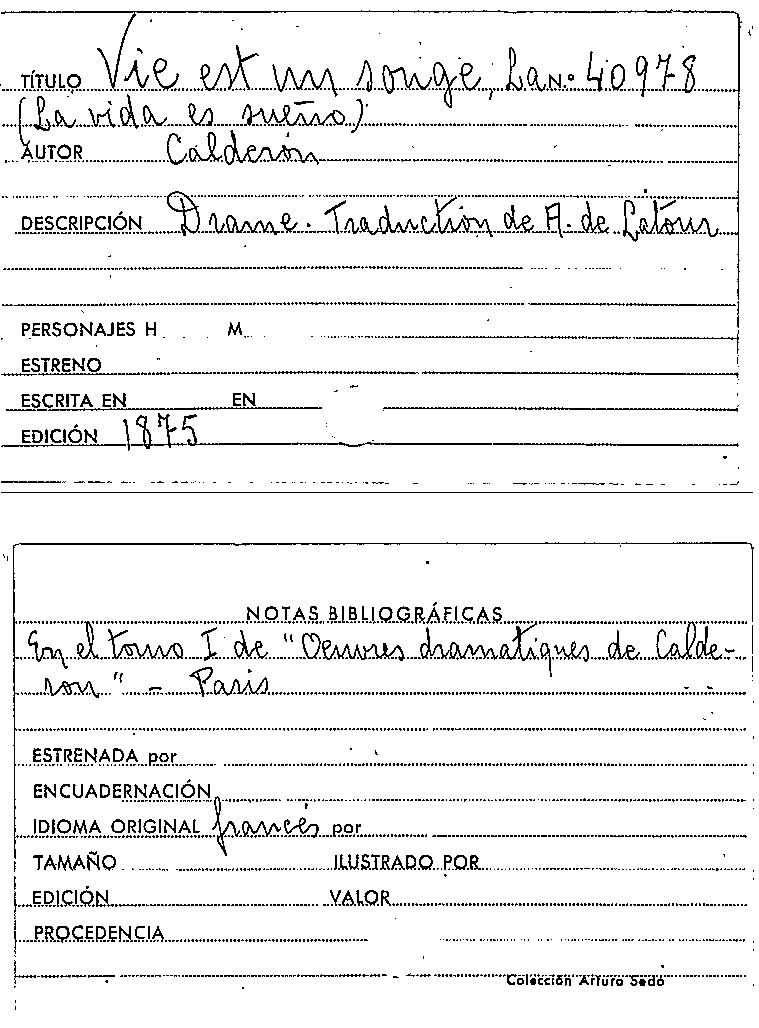 TÍTULO Vie est un songe, La N.º 40978
(La vida es sueño)
AUTOR Calderón
DESCRIPCIÓN Drame. Traduction de A. de Latour
PERSONAJES H M
ESTRENO
ESCRITA EN EN
EDICIÓN 1875
NOTAS BIBLIOGRÁFICAS
En el tomo I de "Oeuvres dramatiques de Calde-
ron" - Paris
ESTRENADA por
ENCUADERNACIÓN
IDIOMA ORIGINAL francés por
TAMAÑO ILUSTRADO POR
EDICIÓN VALOR
PROCEDENCIA
Colección Arturo Sedó